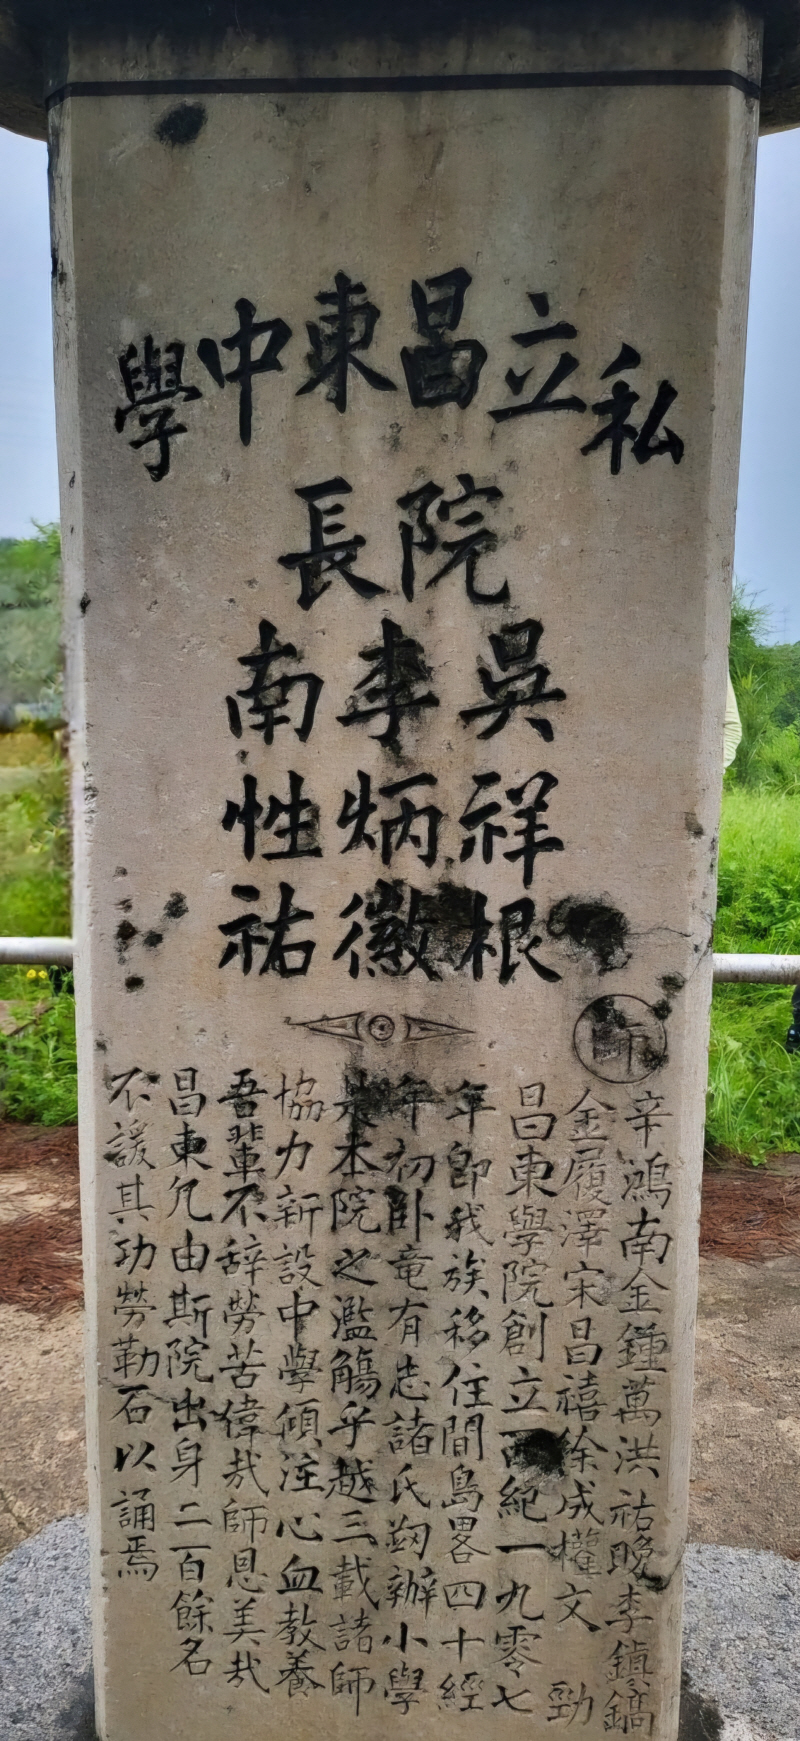 私立昌東中學
院長
吳祥根
李炳徽
南性祐
師
辛鴻南金鍾萬洪祐晚李鎮鎬
金履澤宋昌禧徐成權文勁
昌東學院創立西紀一九零七
年卽我族移住間島畧四十經
年初卧竜有志諸氏刱辦小學
是本院之濫觴乎越三載諸師
協力新設中學傾注心血教養
吾輩不辞勞苦偉哉師恩美哉
昌東凢由斯院出身二百餘名
不諼其功勞勒石以誦焉